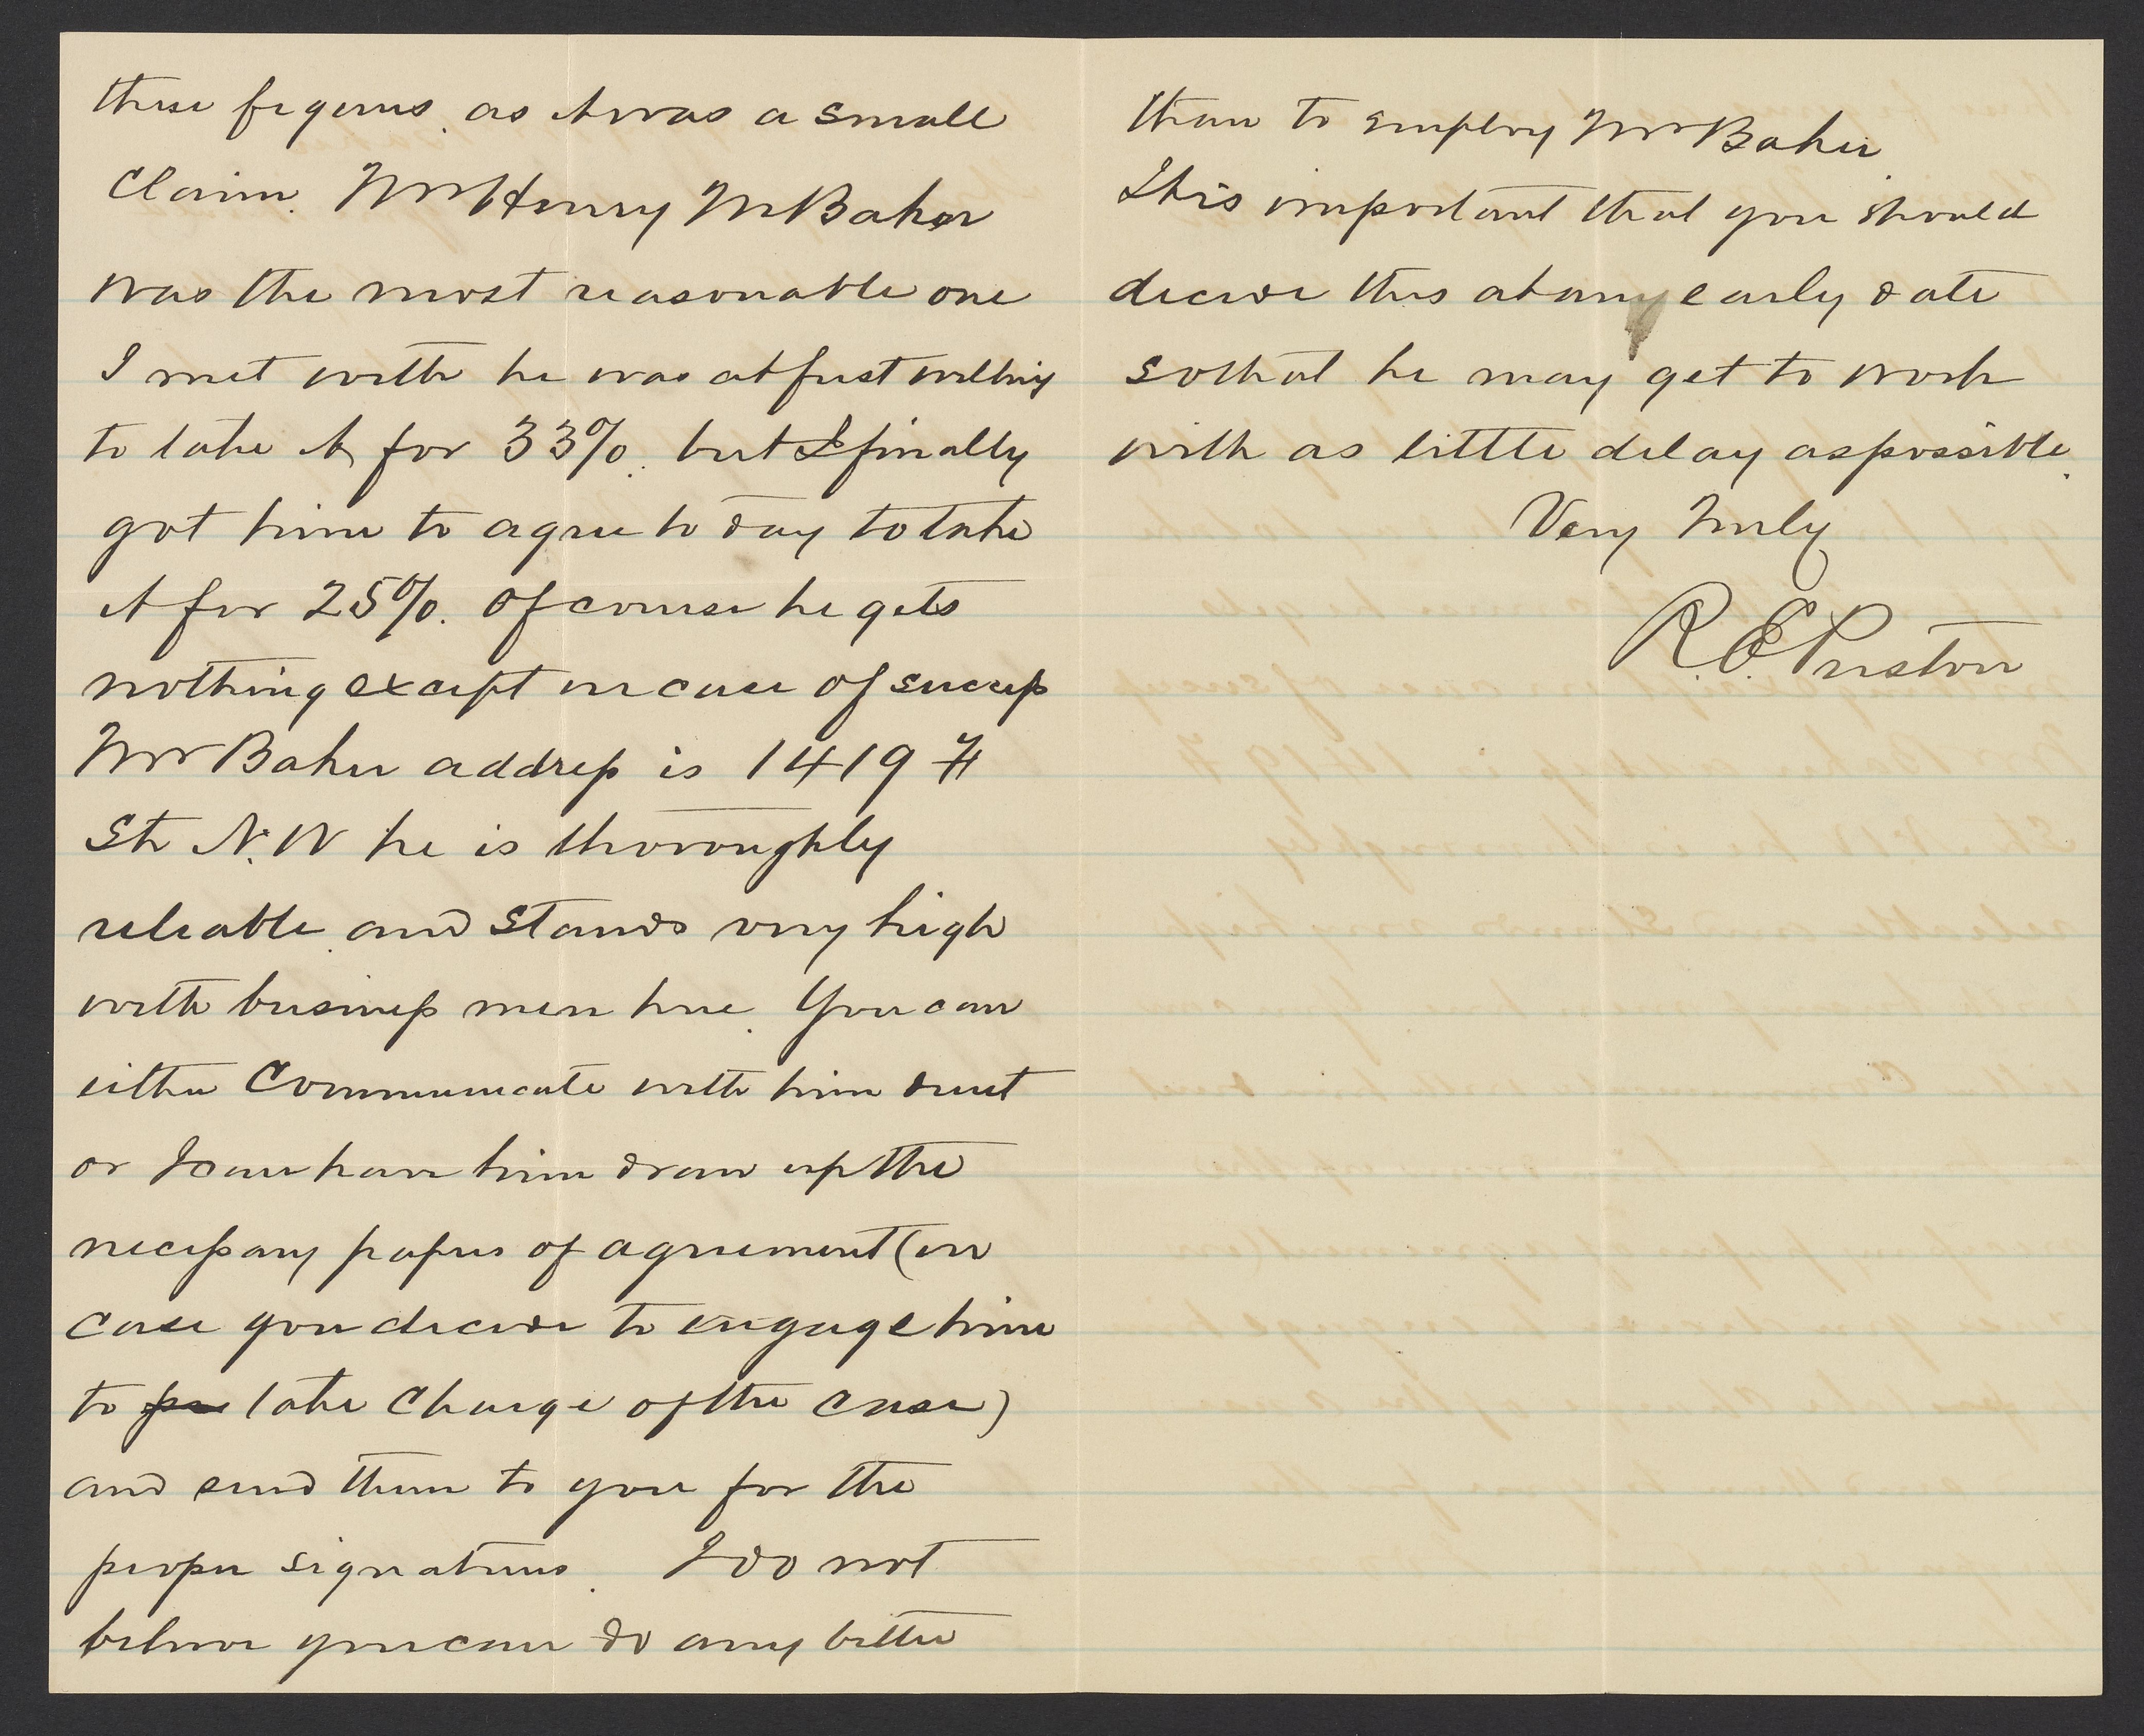 these figures, as it was a small
claim. Mr Henry M Baker
was the most reasonable one
I met with he was at first willing
to take it for 33%. but I finally
got him to agree to day to take
it for 25%. Of course he gets
nothing except in case of success
Mr Baker address is 1419 F
St N.W he is thoroughly
reliable and stands very high
with business men here. You can
either Communicate with him direct
or I can have him draw up the
necessary papers of agreement (in
case you decide to engage him
to take charge of the case)
and send them to you for the
proper signatures. I do not
believe you can do any better
than to employ Mr Baker.
It is important that you should
decide this at any early date
so that he may get to work
with as little delay as possible.
Very Truly
R. E. Preston